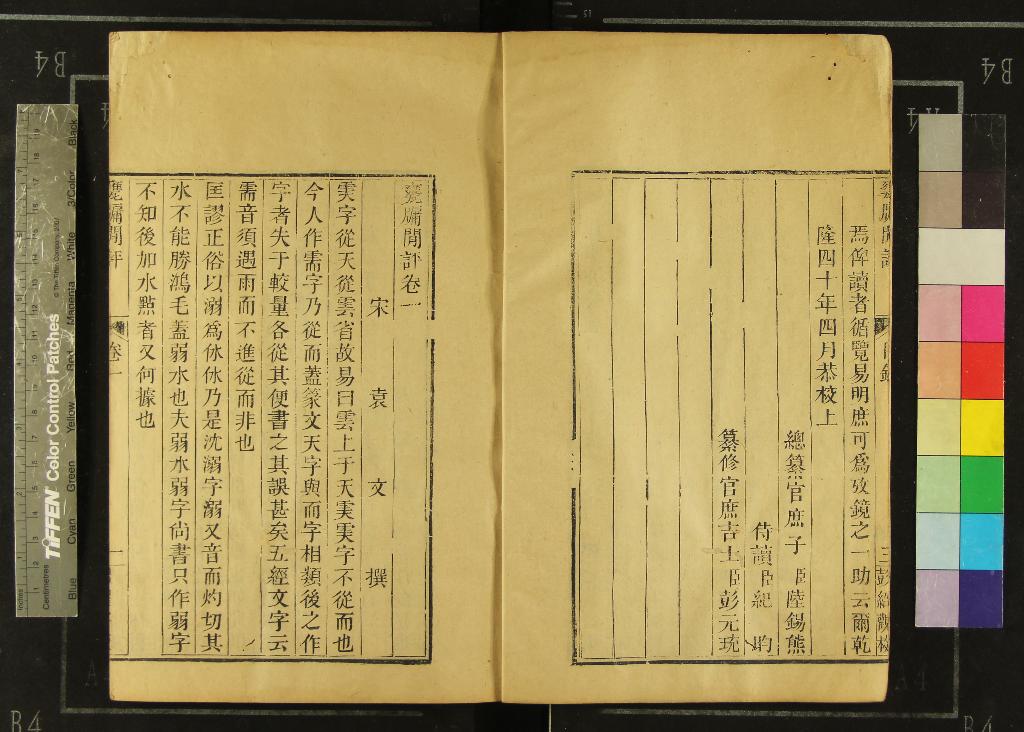 焉俾讀者循覽易明庶可爲攷鏡之一助云爾乾
隆四十年四月恭校上
總纂官庶子臣陸錫熊
侍讀臣紀昀
纂修官庶吉士臣彭元珫
甕牖閒評卷一
宋袁文撰
䨙字從天從雲省故易曰雲上于天䨙䨙字不從而也
今人作需字乃從而蓋篆文天字與而字相類後之作
字者失于較量各從其便書之其誤甚矣五經文字云
需音須遇雨而不進從而非也
匡謬正俗以溺爲休休乃是沈溺字溺又音而灼切其
水不能勝鴻毛蓋弱水也夫弱水弱字尚書只作弱字
不知後加水點者又何據也
甕牖閒評
卷一
一
TIFFEN Color Control Patches
© The Tiffen Company, 2007
Centimetres
Inches
Blue
Cyan
Green
Yellow
Red
Magenta
White
3/Color
Black
B4
B4
B4
B4
A4